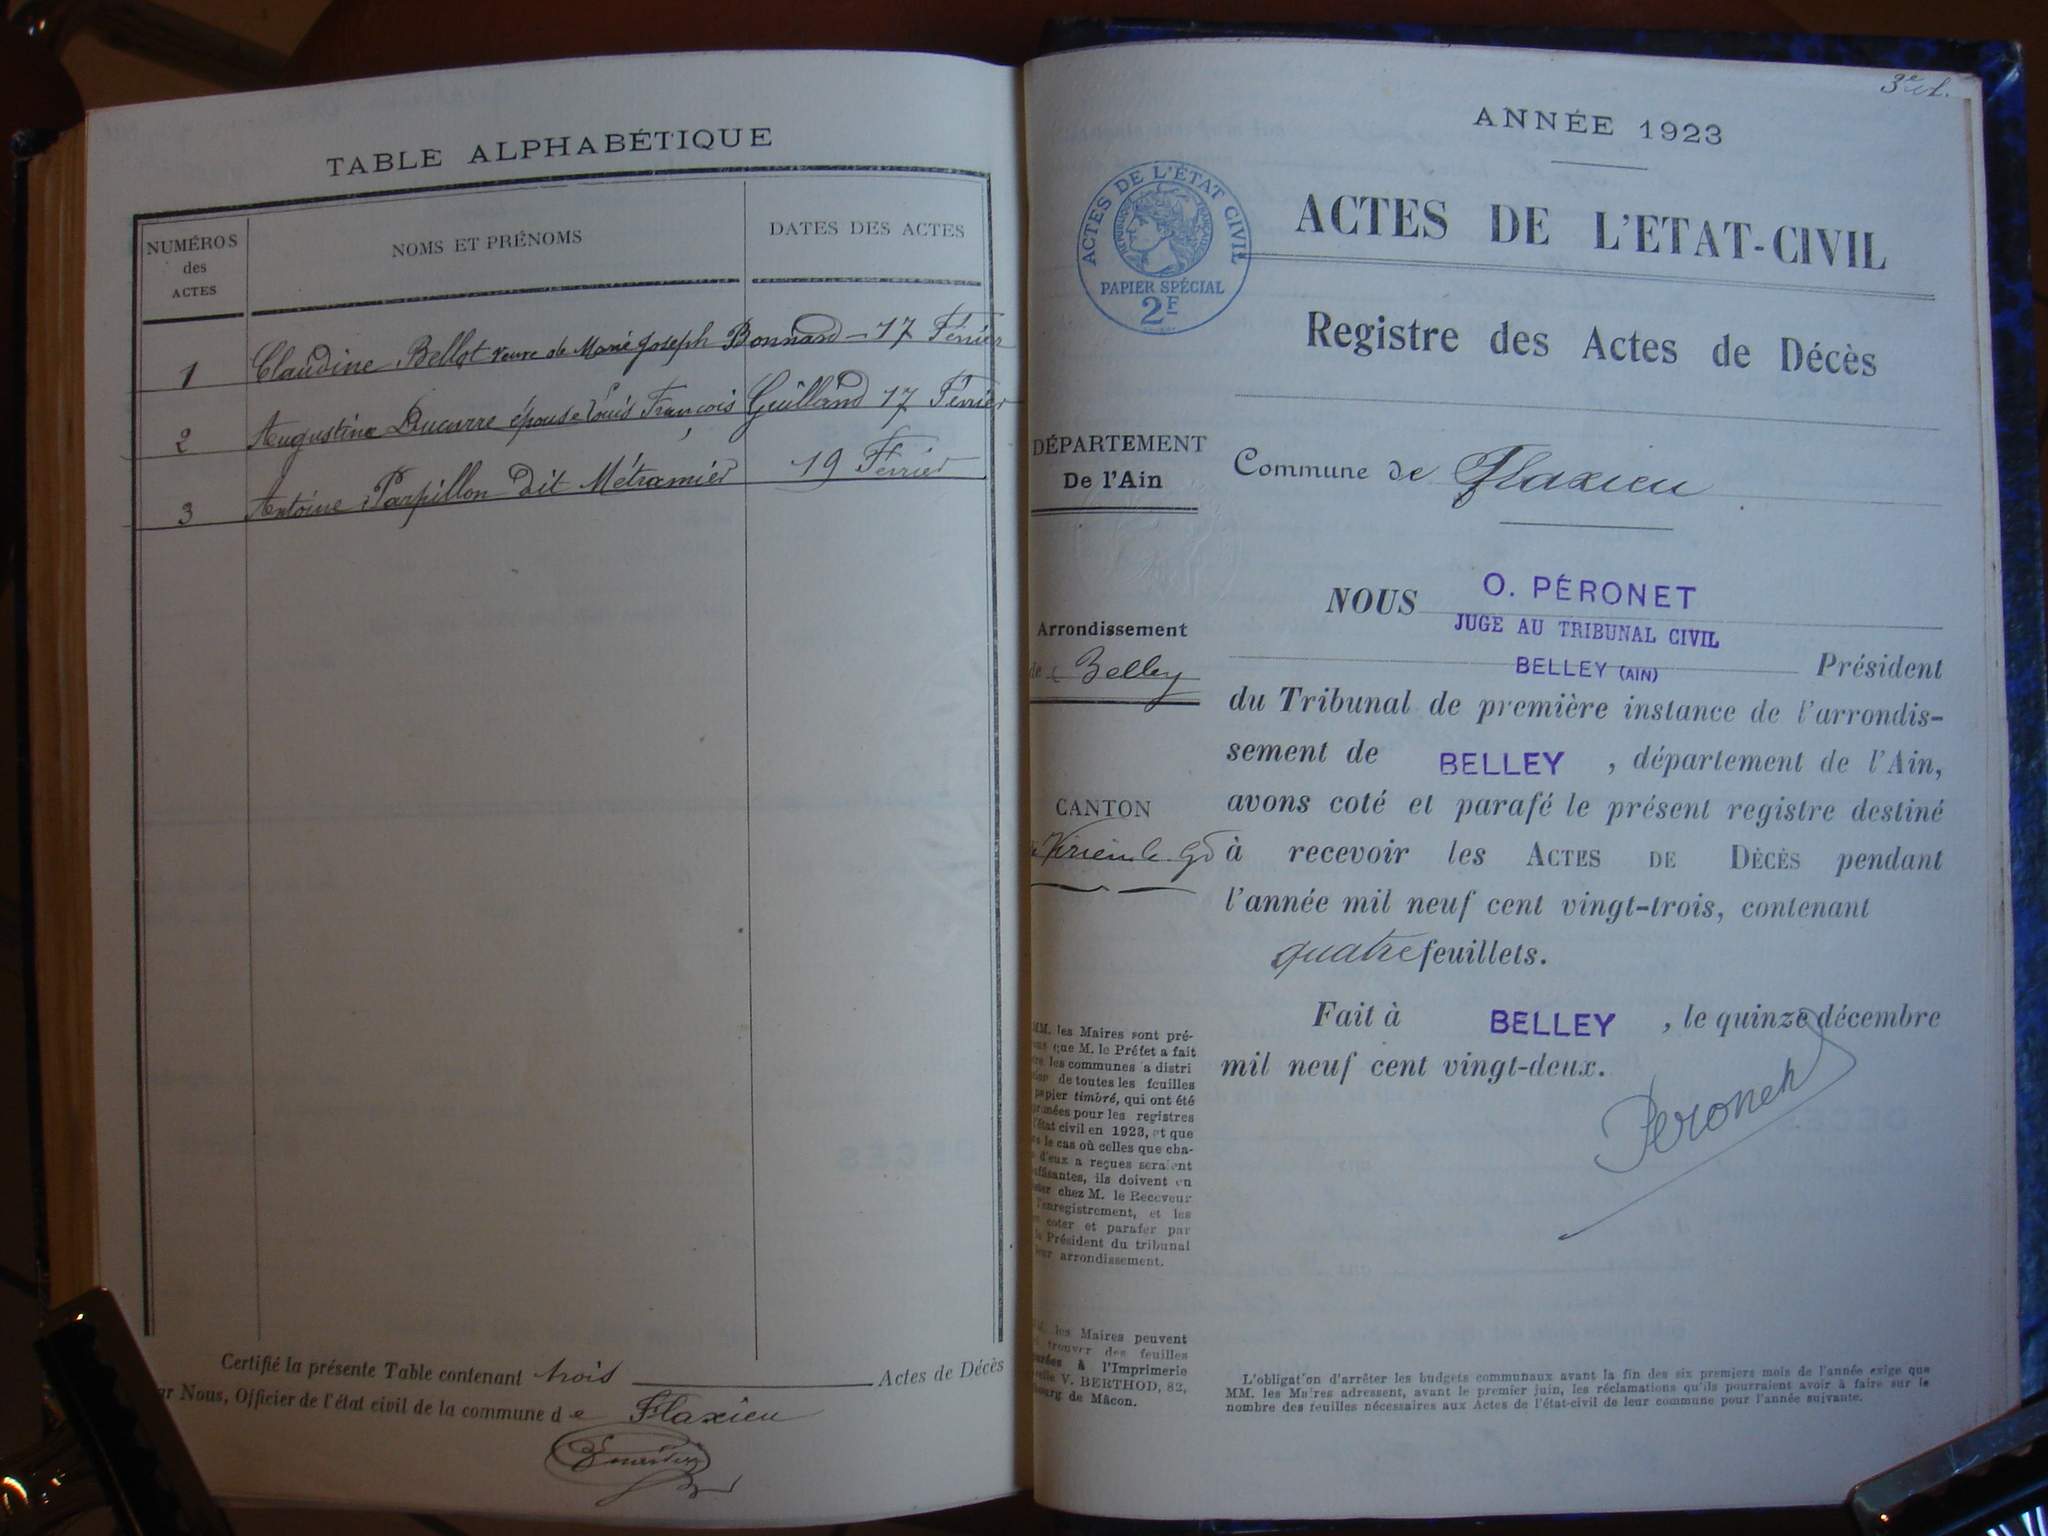 TABLE ALPHABÉTIQUE
NUMÉROS
des
ACTES
NOMS ET PRÉNOMS
DATES DES ACTES
1 Claudine Bellot veuve de Marie Joseph Bonnard 17 Février
2 Augustine Ducarre épouse Louis François Guilland 17 Février
3 Antoine Parpillon dit Métramier 19 Février
Certifié la présente Table contenant trois Actes de Décès
Nous, Officier de l'état civil de la commune de Flaxieu
3e
ANNÉE 1923
ACTES DE L'ÉTAT CIVIL
RÉPUBLIQUE FRANÇAISE
PAPIER SPÉCIAL
2F
ACTES DE L'ETAT-CIVIL
Registre des Actes de Décès
DÉPARTEMENT
De l'Ain
Commune de Flaxieu
Arrondissement
de Belley
CANTON
Virieu le Gd
NOUS O. PÉRONET
JUGE AU TRIBUNAL CIVIL
BELLEY (AIN) Président
du Tribunal de première instance de l'arrondis-
sement de BELLEY, département de l'Ain,
avons coté et parafé le présent registre destiné
à recevoir les ACTES DE DÉCÈS pendant
l'année mil neuf cent vingt-trois, contenant
quatre feuillets.
Fait à BELLEY, le quinze décembre
mil neuf cent vingt-deux.
Peronet
MM. les Maires sont pré-
que M. le Préfet a fait
les communes a distri
de toutes les feuilles
papier timbré, qui ont été
pour les registres
l'état civil en 1923, et que
le cas où celles que cha-
d'eux a reçues seraient
ils doivent en
chez M. le Receveur
l'enregistrement, et les
coter et parafer par
Président du tribunal
leur arrondissement.
les Maires peuvent
trouver des feuilles
à l'Imprimerie
V. BERTHOD, 82,
de Mâcon.
L'obligation d'arrêter les budgets communaux avant la fin des six premiers mois de l'année exige que
MM. les Maires adressent, avant le premier juin, les réclamations qu'ils pourraient avoir à faire sur le
nombre des feuilles nécessaires aux Actes de l'état-civil de leur commune pour l'année suivante.